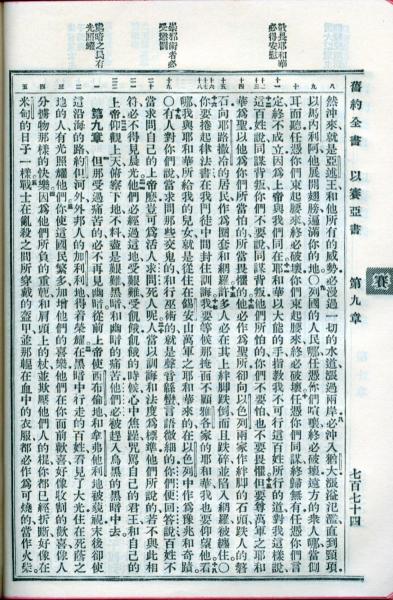 舊約全書　以賽亞書　第九章　七百七十四
賽
敬畏耶和華
必得安慰
崇邪術者必
受懲罰
處暗之民有
光照耀
八　然沖來就是亞述王和他所有的威勢必漫過一切的水道過兩岸必沖入猶大漲溢氾濫直到頸項
以馬內利阿他展開翅膀遍滿你的地〇列國的人民哪任憑你們喧嚷終必破壞遠方的衆人哪當側
耳而聽任憑你們束起腰來終必破壞你們束起腰來終必破壞任憑你們同謀終歸無有任憑你們言
定終不成立因爲上帝與我們同在耶和華以大能的手指教我不可行這百姓所行的道對我這樣說
這百姓說同謀背叛你們不要說同謀背叛他們所怕的你們不要怕也不要畏懼但要尊萬軍之耶和
華爲聖以他爲你們所當怕的所當畏懼的他必作爲聖所卻向以色列兩家作絆腳的石頭跌人的磐
石向耶路撒冷的居民作爲圈套和網羅許多人必在其上絆腳跌倒而且跌碎並陷入網羅被纏住〇
你要捲起律法書在我門徒中間封住訓誨我要等候那掩面不顧雅各家的耶和華我也要仰望他看
哪我與耶和華所給我的兒女就是從住在錫安山萬軍之耶和華來的在以色列中作爲豫兆和奇蹟
〇有人對你們說當求問那些交鬼的和行巫術的就是聲音綿蠻言語微細的你們便回答說百姓不
當求問自己的上帝麼豈可爲活人求問死人呢人當以訓誨和法度爲標準他們所說的若不與此相
符必不得見晨光他們必經過這地受艱難受飢餓飢餓的時候心中焦躁咒罵自己的君王和自己的
上帝仰觀上天俯察下地不料盡是艱難黑暗和幽暗的痛苦他們必被趕入烏黑的黑暗中去
第九章　但那受過痛苦的必不再見幽暗從前上帝使西布倫地和拿弗他利地被藐視末後卻使
這沿海的路約但河外外邦人的加利利地得着榮耀在黑暗中行走的百姓看見了大光住在死蔭之
地的人有光照耀他們你使這國民繁多加增他們的喜樂他們在你面前歡喜好像收割的歡喜像人
分擄物那樣的快樂因爲他們所負的重軛和肩頭上的杖並欺壓他們人的棍你都已經折斷好像在
米甸的日子一樣戰士在亂殺之間所穿戴的盔甲並那輥在血中的衣服都必作爲可燒的當作火柴